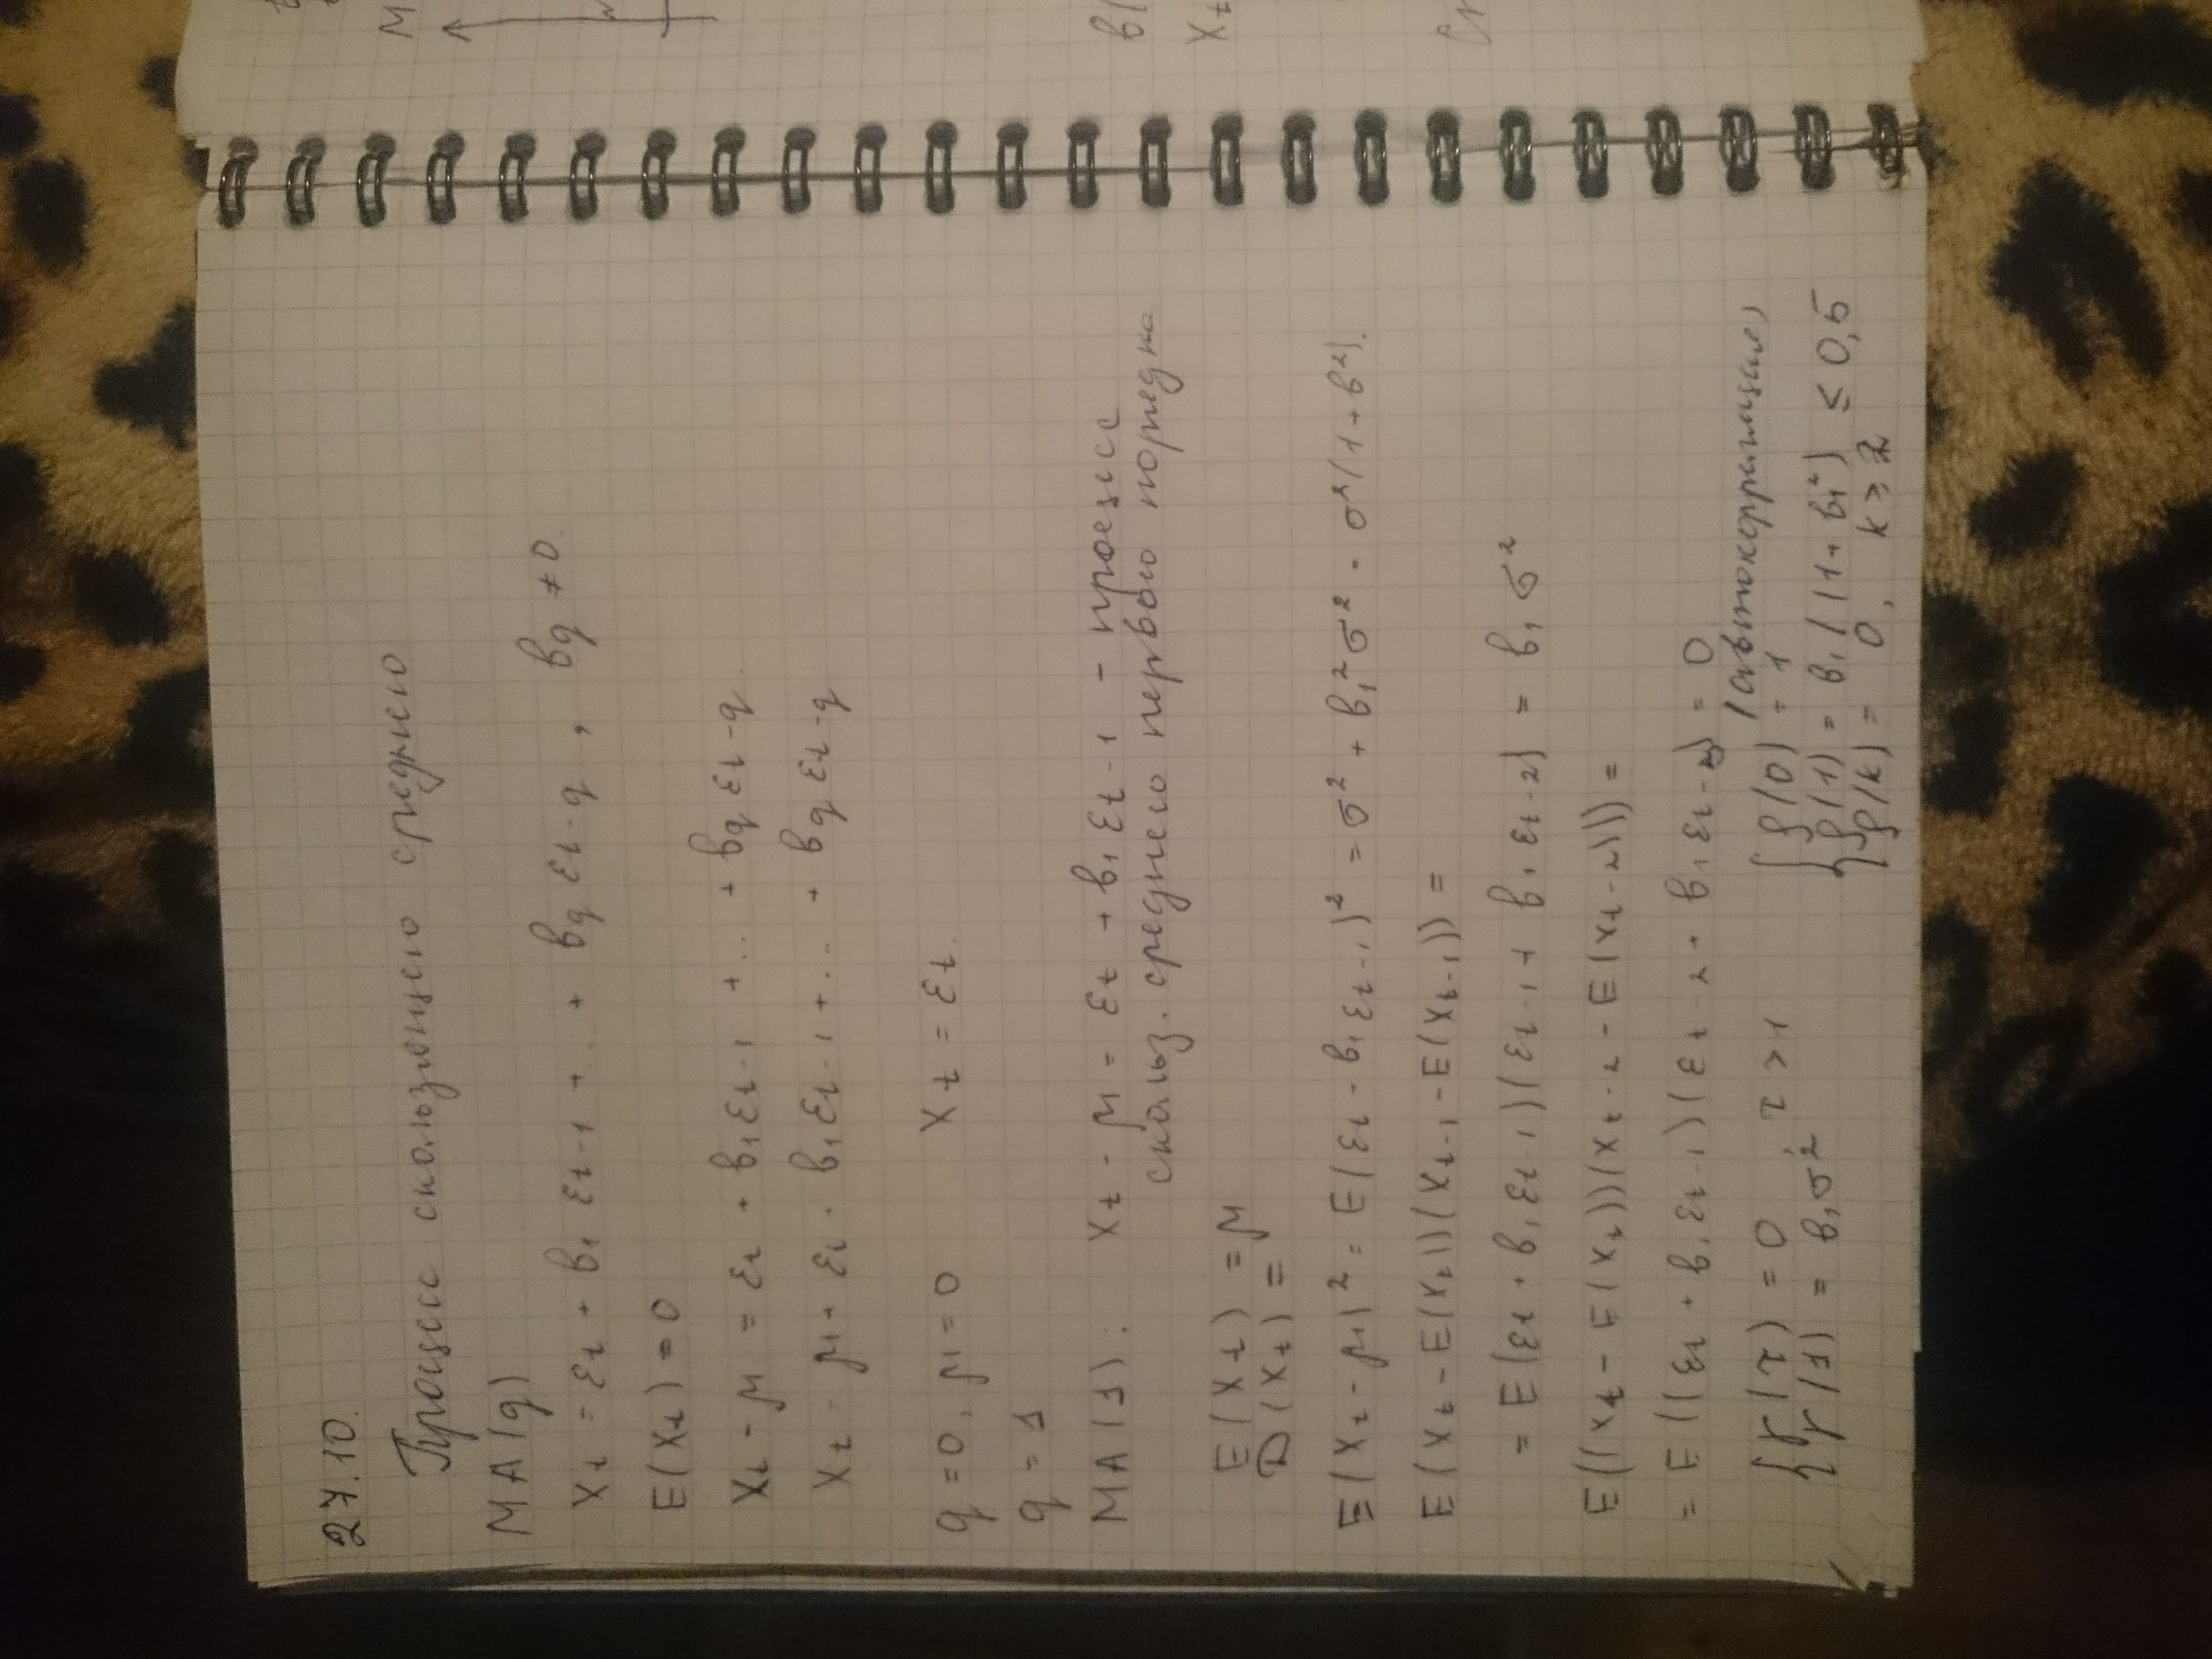 27.10.
Процесс скользящего среднего
MA(q)
Xt = εt + b1 εt-1 + ... + bq εt-q, bq ≠ 0.
E(Xt) = 0
Xt - μ = εt + b1 εt-1 + ... + bq εt-q.
Xt - μ + εt - b1 εt-1 + ... + bq εt-q
q = 0, μ = 0 Xt = εt.
q = 1
MA(1): Xt - μ = εt + b1 εt-1 - процесс
скольз. среднего первого порядка
E(Xt) = μ
D(Xt) =
E(Xt - μ)² = E(εt - b1 εt-1)² = σ² + b1² σ² = σ²(1 + b²).
E(Xt - E(Xt))(Xt-1 - E(Xt-1)) =
= E(εt + b1 εt-1)(εt-1 + b1 εt-2) = b1 σ²
E((Xt - E(Xt))(Xt-2 - E(Xt-2))) =
= E((εt + b1 εt-1)(εt-2 + b1 εt-3) = 0
{ γ(τ) = 0 τ > 1
γ(1) = b1 σ²
(автокорреляция)
{ ρ(0) = 1
ρ(1) = b1 / (1 + b1²) ≤ 0,5
ρ(k) = 0, k ≥ 2
M
t
в
Xt